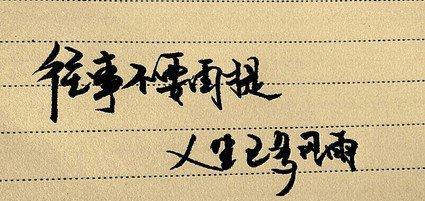 往事不要再提
人生已多风雨